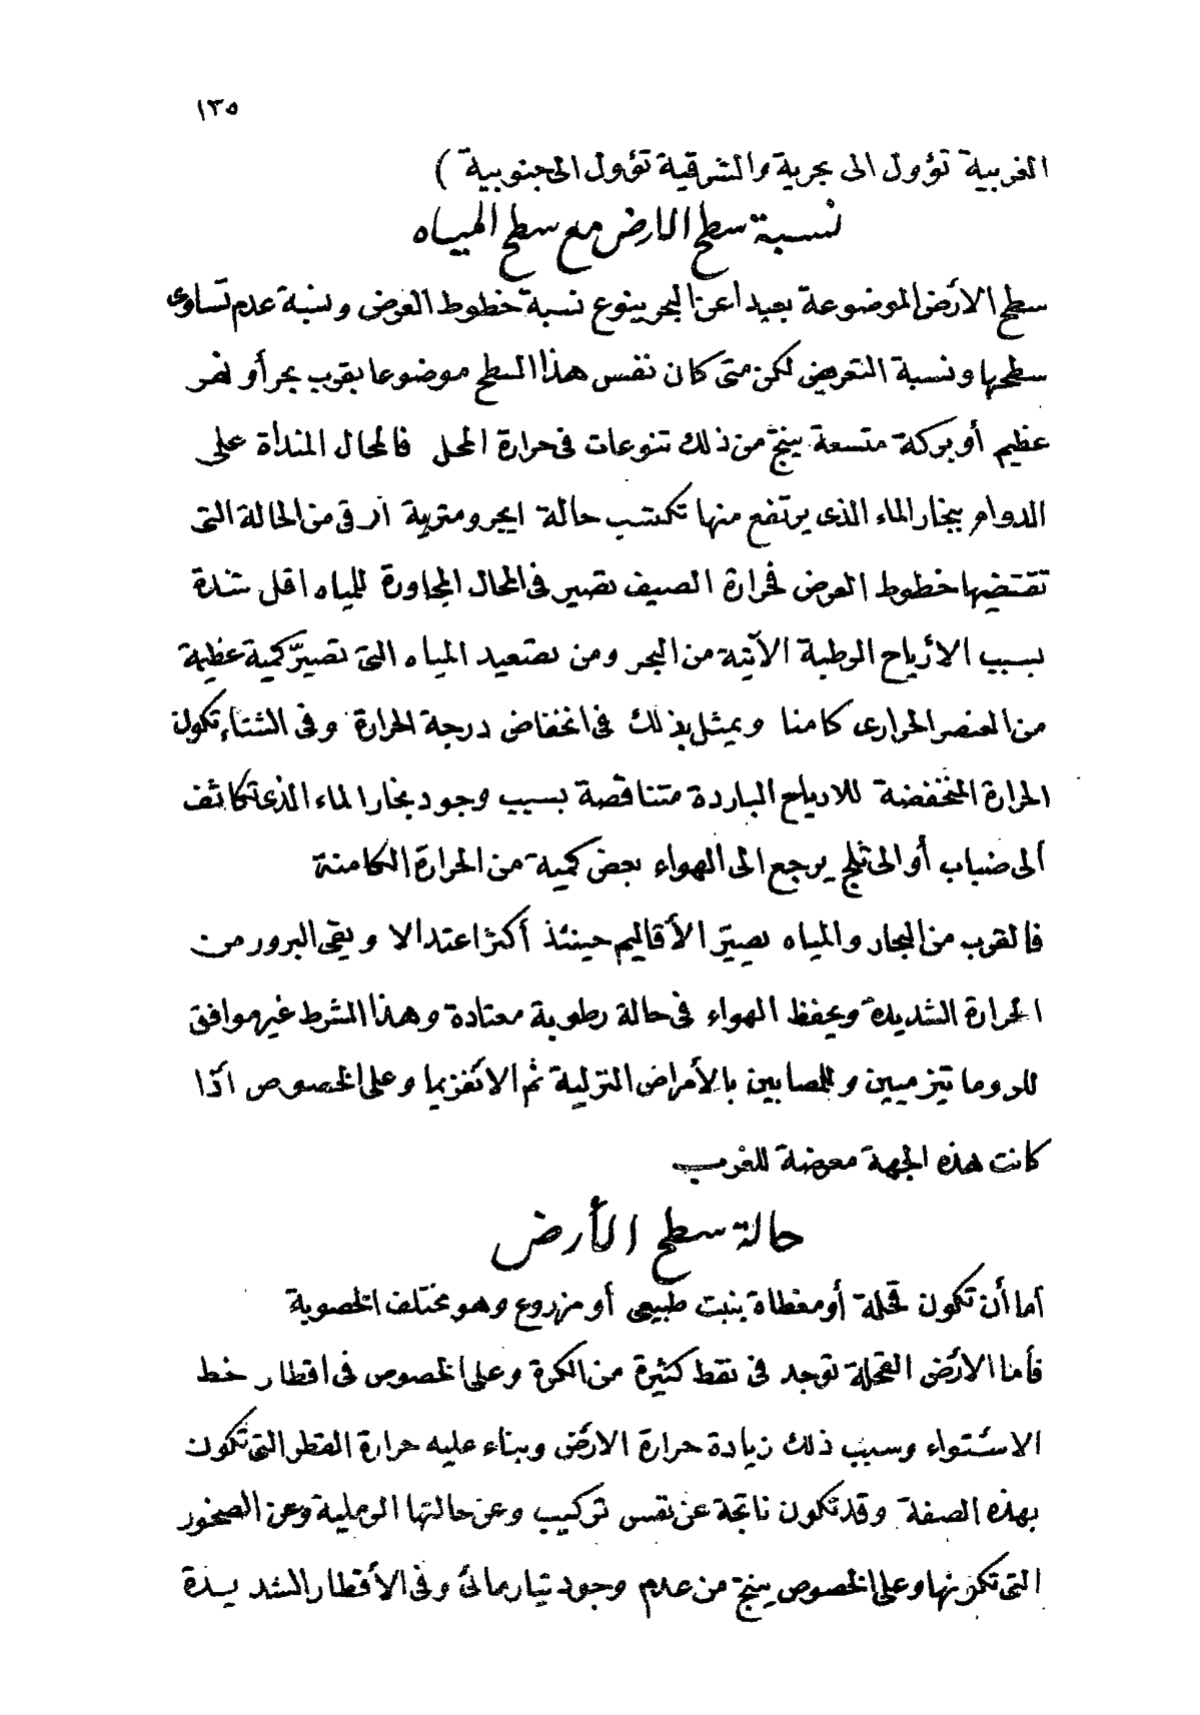 ١٣٥
الغربية تؤول الى بحرية والشرقية تؤول الى جنوبية )
نسبة سطح الارض مع سطح المياه
سطح الأرض الموضوعة بعيدا عن البحر ينوع نسبة خطوط العرض ونسبة عدم تساوى
سطحها ونسبة التعريض لكن متى كان نفس هذا السطح موضوعا بقرب بحر أو نهر
عظيم أو بركة متسعة ينتج من ذلك تنوعات فى حرارة المحل فالمحال المنداة على
الدوام ببخار الماء الذى يرتفع منها تكتسب حالة ايجرومترية أرقى من الحالة التى
تقتضيها خطوط العرض فحرارة الصيف تصير فى المحال المجاورة للمياه اقل شدة
بسبب الأرياح الرطبة الآتية من البحر ومن تصعيد المياه التى تصيّر كمية عظيمة
من العنصر الحرارى كامنا ويمثل بذلك فى انخفاض درجة الحرارة وفى الشتاء تكون
الحرارة المنخفضة للارياح الباردة متناقصة بسبب وجود بخار الماء الذى تكاثف
الى ضباب أو الى ثلج يرجع الى الهواء بعض كمية من الحرارة الكامنة
فالقرب من البحار والمياه يصيّر الأقاليم حينئذ أكثر اعتدالا ويقى البرور من
الحرارة الشديدة ويحفظ الهواء فى حالة رطوبة معتادة وهذا الشرط غير موافق
للروماتيزميين وللمصابين بالأمراض النزلية ثم الانفزيما وعلى الخصوص اذا
كانت هذه الجهة معرضة للغرب
حالة سطح الأرض
أما أن تكون قحلة أو مغطاة بنبت طبيعى أو مزروع وهو مختلف الخصوبة
فأما الأرض القحلة توجد فى نقط كثيرة من الكرة وعلى الخصوص فى اقطار خط
الاستواء وسبب ذلك زيادة حرارة الارض وبناء عليه حرارة القطر التى تكون
بهذه الصفة وقد تكون ناتجة عن نفس تركيب وعن حالتها الرملية وعن الصخور
التى تكونها وعلى الخصوص ينتج من عدم وجود تيار مائى وفى الأقطار الشديدة